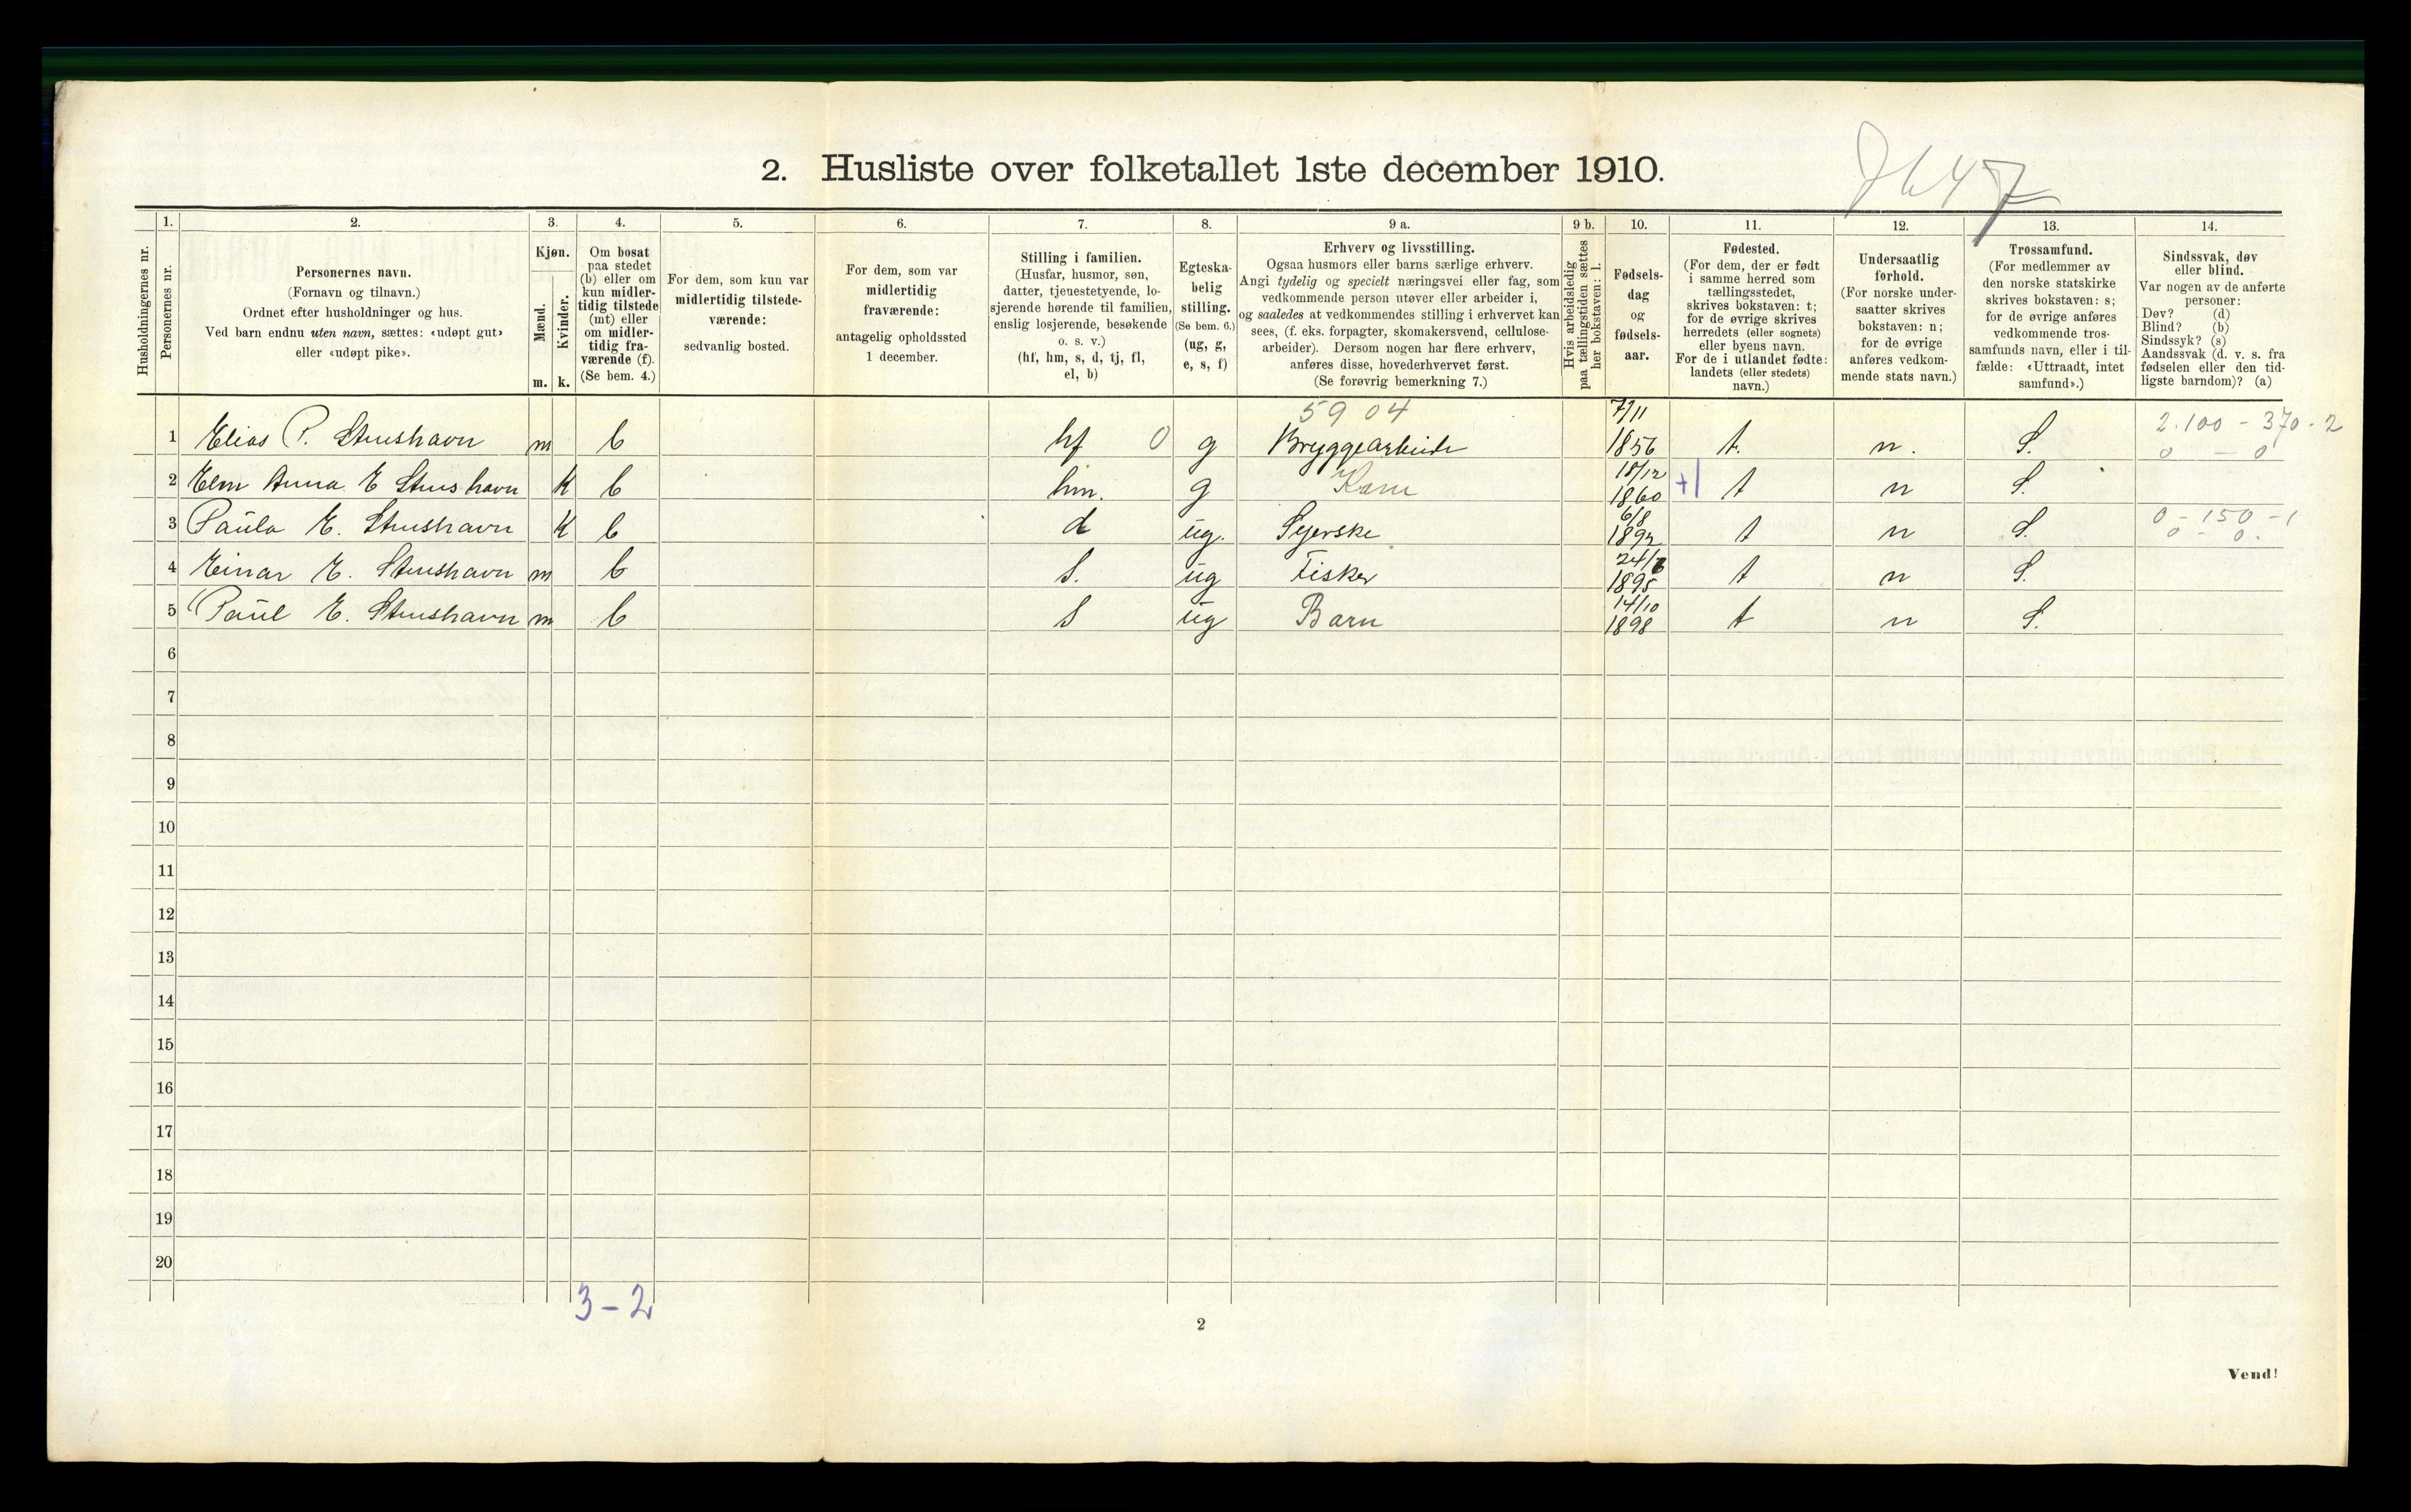 2. Husliste over folketallet 1ste december 1910.
1. 2. 3. 4. 5. 6. 7. 8. 9 a. 9 b. 10. 11. 12. 13. 14.
Husholdningernes nr.
Personernes nr.
Personernes navn.
(Fornavn og tilnavn.)
Ordnet efter husholdninger og hus.
Ved barn endnu uten navn, sættes: «udøpt gut»
eller «udøpt pike».
Kjøn.
Mænd.
Kvinder.
m. k.
Om bosat
paa stedet
(b) eller om
kun midler-
tidig tilstede
(mt) eller
om midler-
tidig fra-
værende (f).
(Se bem. 4.)
For dem, som kun var
midlertidig tilstede-
værende:
sedvanlig bosted.
For dem, som var
midlertidig
fraværende:
antagelig opholdssted
1 december.
Stilling i familien.
(Husfar, husmor, søn,
datter, tjenestetyende, lo-
sjerende hørende til familien,
enslig losjerende, besøkende
o. s. v.)
(hf, hm, s, d, tj, fl,
el, b)
Egteska-
belig
stilling.
(Se bem. 6.)
(ug, g,
e, s, f)
Erhverv og livsstilling.
Ogsaa husmors eller barns særlige erhverv.
Angi tydelig og specielt næringsvei eller fag, som
vedkommende person utøver eller arbeider i,
og saaledes at vedkommendes stilling i erhvervet kan
sees, (f. eks. forpagter, skomakersvend, cellulose-
arbeider). Dersom nogen har flere erhverv,
anføres disse, hovederhvervet først.
(Se forøvrig bemerkning 7.)
Hvis arbeidsledig
paa tællingstiden sættes
her bokstaven: l.
Fødsels-
dag
og
fødsels-
aar.
Fødested.
(For dem, der er født
i samme herred som
tællingsstedet,
skrives bokstaven: t;
for de øvrige skrives
herredets (eller sognets)
eller byens navn.
For de i utlandet fødte:
landets (eller stedets)
navn.)
Undersaatlig
forhold.
(For norske under-
saatter skrives
bokstaven: n;
for de øvrige
anføres vedkom-
mende stats navn.)
Trossamfund.
(For medlemmer av
den norske statskirke
skrives bokstaven: s;
for de øvrige anføres
vedkommende tros-
samfunds navn, eller i til-
fælde: «Uttraadt, intet
samfund».)
Sindssvak, døv
eller blind.
Var nogen av de anførte
personer:
Døv? (d)
Blind? (b)
Sindssyk? (s)
Aandssvak (d. v. s. fra
fødselen eller den tid-
ligste barndom)? (a)
5904 7/11 2.100 - 370 - 2
1 Elias P. Stenshavn m b hf 0 g Bryggearbeide 1856 t. n. S. 0 - 0
18/12
2 Elen Anna E Stenshavn K b hm. g Kone 1860 +1 t n S.
6/8 0 - 150 - 1
3 Paula E. Stenshavn K b d ug. Syerske 1892 t n S. 0 - 0.
24/6
4 Einar E. Stenshavn m b S. ug Fisker 1895 t n S.
14/10
5 Paul E. Stenshavn m b S ug Barn 1898 t n S.
6
7
8
9
10
11
12
13
14
15
16
17
18
19
20
3-2
2
Vend!